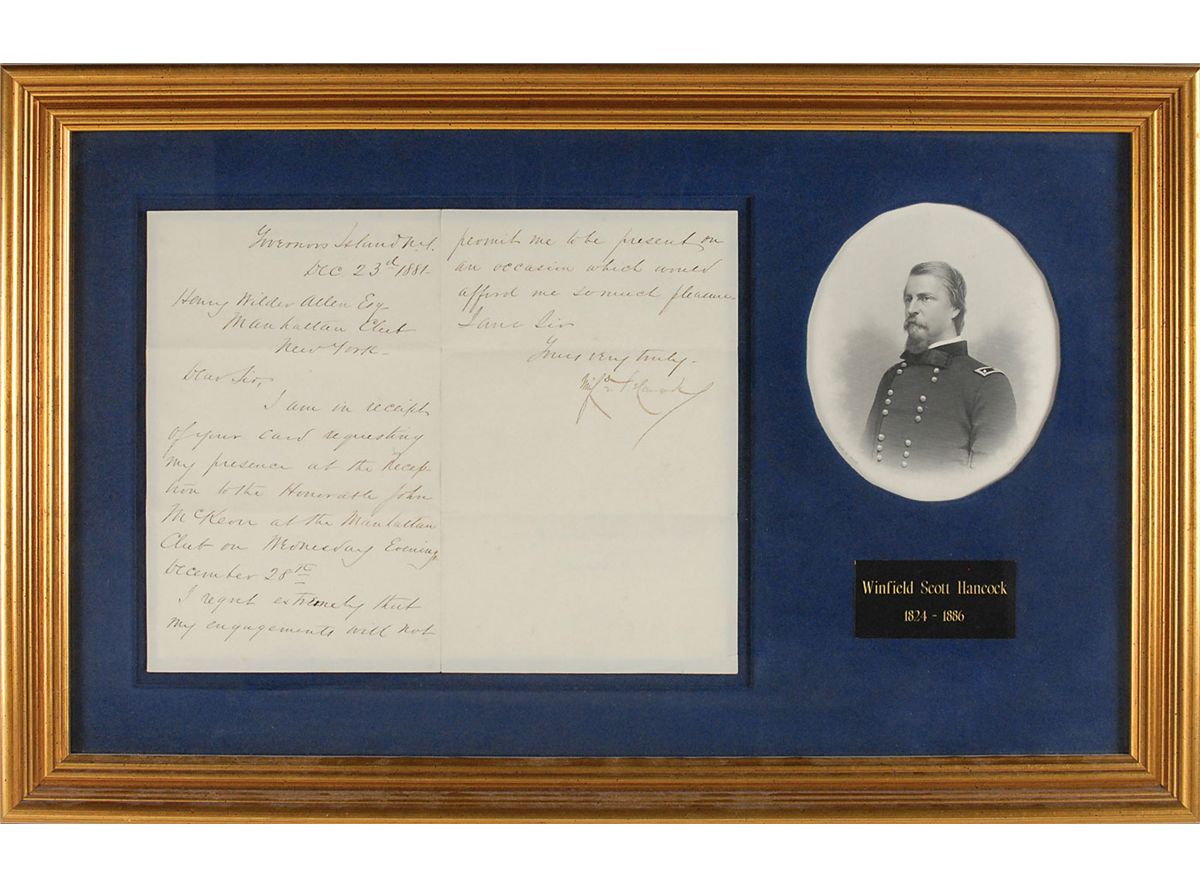 Governors Island N.Y.
Dec. 23d 1881
Henry Wilder Allen Esq
Manhattan Club
New York-
Dear Sir,
I am in receipt
of your card requesting
my presence at the Recep-
tion to the Honorable John
McKeon at the Manhattan
Club on Wednesday Evening
December 28th
I regret extremely that
my engagements will not
permit me to be present on
an occasion which would
afford me so much pleasure.
I am Sir
Yours very truly-
Winfd S Hancock
Winfield Scott Hancock
1824 - 1886